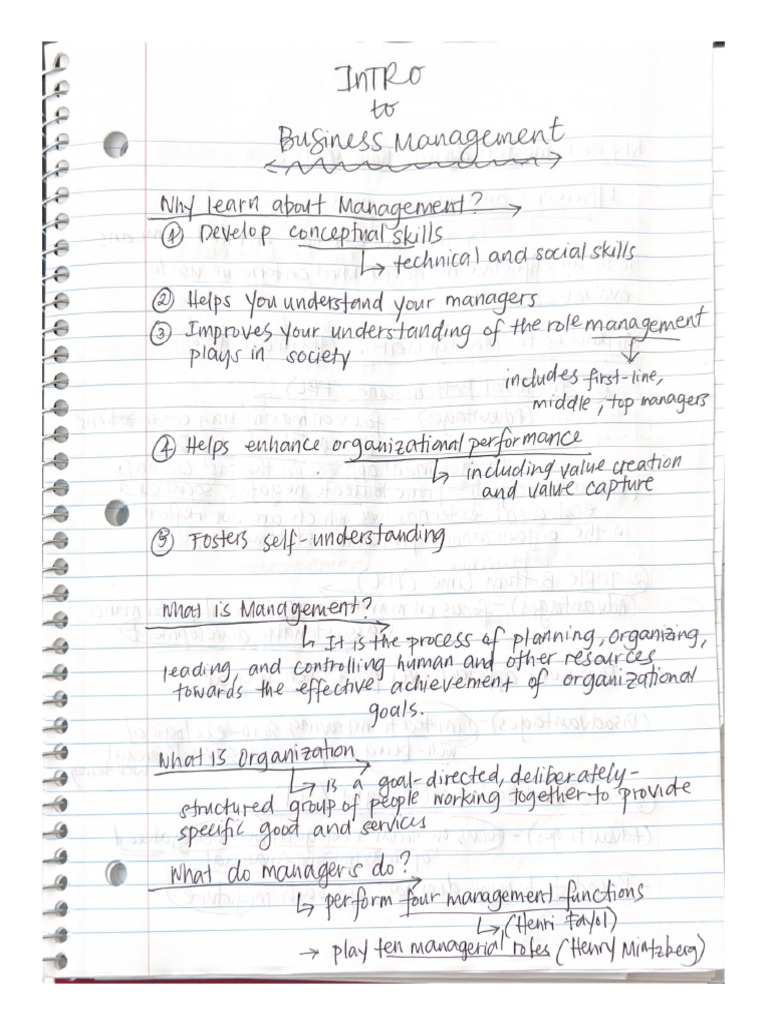 INTRO
to
Business Management
Why learn about Management?
① Develop conceptual skills
↳ technical and social skills
② Helps you understand your managers
③ Improves your understanding of the role management
plays in society
includes first-line,
middle, top managers
④ Helps enhance organizational performance
↳ including value creation
and value capture
⑤ Fosters self-understanding
What is Management?
↳ It is the process of planning, organizing,
leading, and controlling human and other resources
towards the effective achievement of organizational
goals.
What is Organization
↳ is a goal-directed, deliberately-
structured group of people working together to provide
specific good and services
What do managers do?
↳ perform four management functions
↳ (Henri Fayol)
→ play ten managerial roles (Henry Mintzberg)